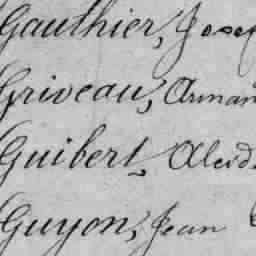 Gauthier, Josef
Griveau, Arman
Guibert, Alcid
Guyon, Jean